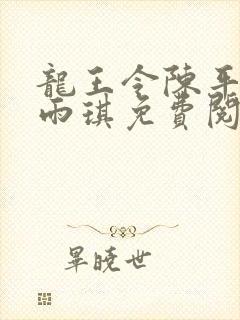 龍王令陳平
雨琪免費閱
畢曉世